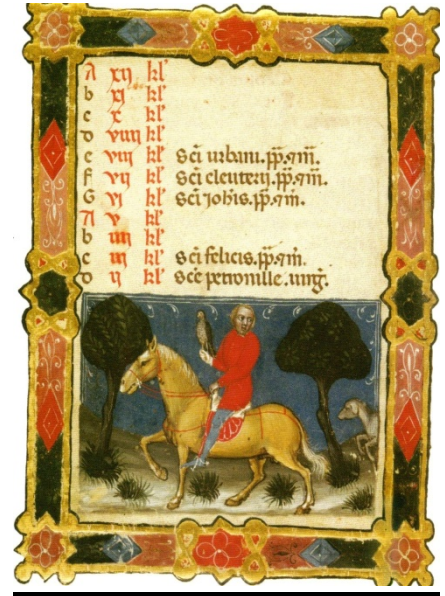 A xij kl'
b xj kl'
c x kl'
D viiij kl'
e viij kl' Sci urbani. pp. ⁊ m̄.
f vij kl' Sci eleuterij. pp. ⁊ m̄.
G vj kl' Sci Johis. pp. ⁊ m̄.
A v kl'
b iiij kl'
c iij kl' Sci felicis. pp. ⁊ m̄.
D ij kl' Sce petronille. uirḡ.